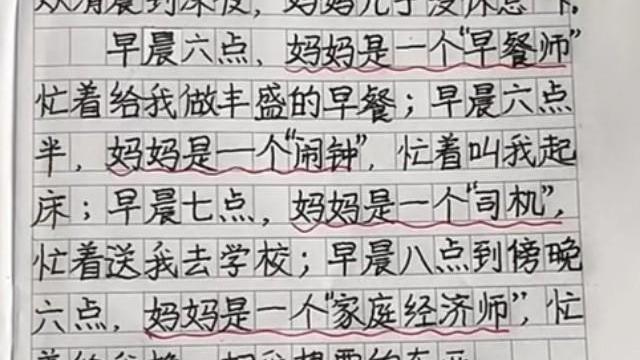 从清晨到深夜，妈妈几乎没休息
早晨六点，妈妈是一个“早餐师”
忙着给我做丰盛的早餐；早晨六点
半，妈妈是一个“闹钟”，忙着叫我起
床；早晨七点，妈妈是一个“司机”，
忙着送我去学校；早晨八点到傍晚
六点，妈妈是一个“家庭经济师”，忙